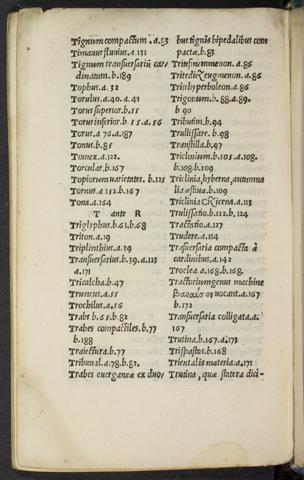 Tignum compactum. a.53
Timauus fluuius. a.131
Tignum transuersariū car/
dinatum. b.189
Tophus. a.32
Torulus. a.40. a.41
Torus superior. b.55
Torus inferior. b 55. a.56
Torus. a 76. a.187
Tonus. b.85
Tomex. a.122.
Torcular. b.167
Topiorum uarietates. b.125
Tornus. a 152. b.167
Tona. a.164
T ante R
Triglyphus. b.61. b.68
Triton. a.19
Triplinthius. a.39
Transuersarius. b.39. a.123
a.171
Tricalcha. b.47
Truncus. a.55
Trochilus. a.56
Trabs b.65. b.82
Trabes compactiles. b.77
b.188
Traiectura. b.77
Tribunal. a.78. b.82.
Trabes euerganeæ ex duo/
bus tignis bipedalibus com
pactæ. b.83
Trite synemmenon. a.86
Trite diezeugmenon. a.86
Trite hyperboleon. a.86
Trigonum. b.88. a.89.
b 90
Tributim. b.94
Trullissare. b.98
Transtilla. b.97
Triclinium. b.105. a.108.
b.108. b.109
Triclinia hyberna, autumna
lia æstiua b.109
Triclinia Cyzicena. a.113
Trulissatio. b.122. b.124
Tractatio. a.127
Trudere. a.134
Trāsuersaria compacta à
cardinibus. a.142
Troclea. a.168. b.168.
Tractorium genus machinæ
uocant. a.167
b.172
Transuersaria colligata. a.
167
Trutina. b.167. a.173
Trispastos. b.168
Trientalis materia. a.171
Trutina, quæ statera dici-